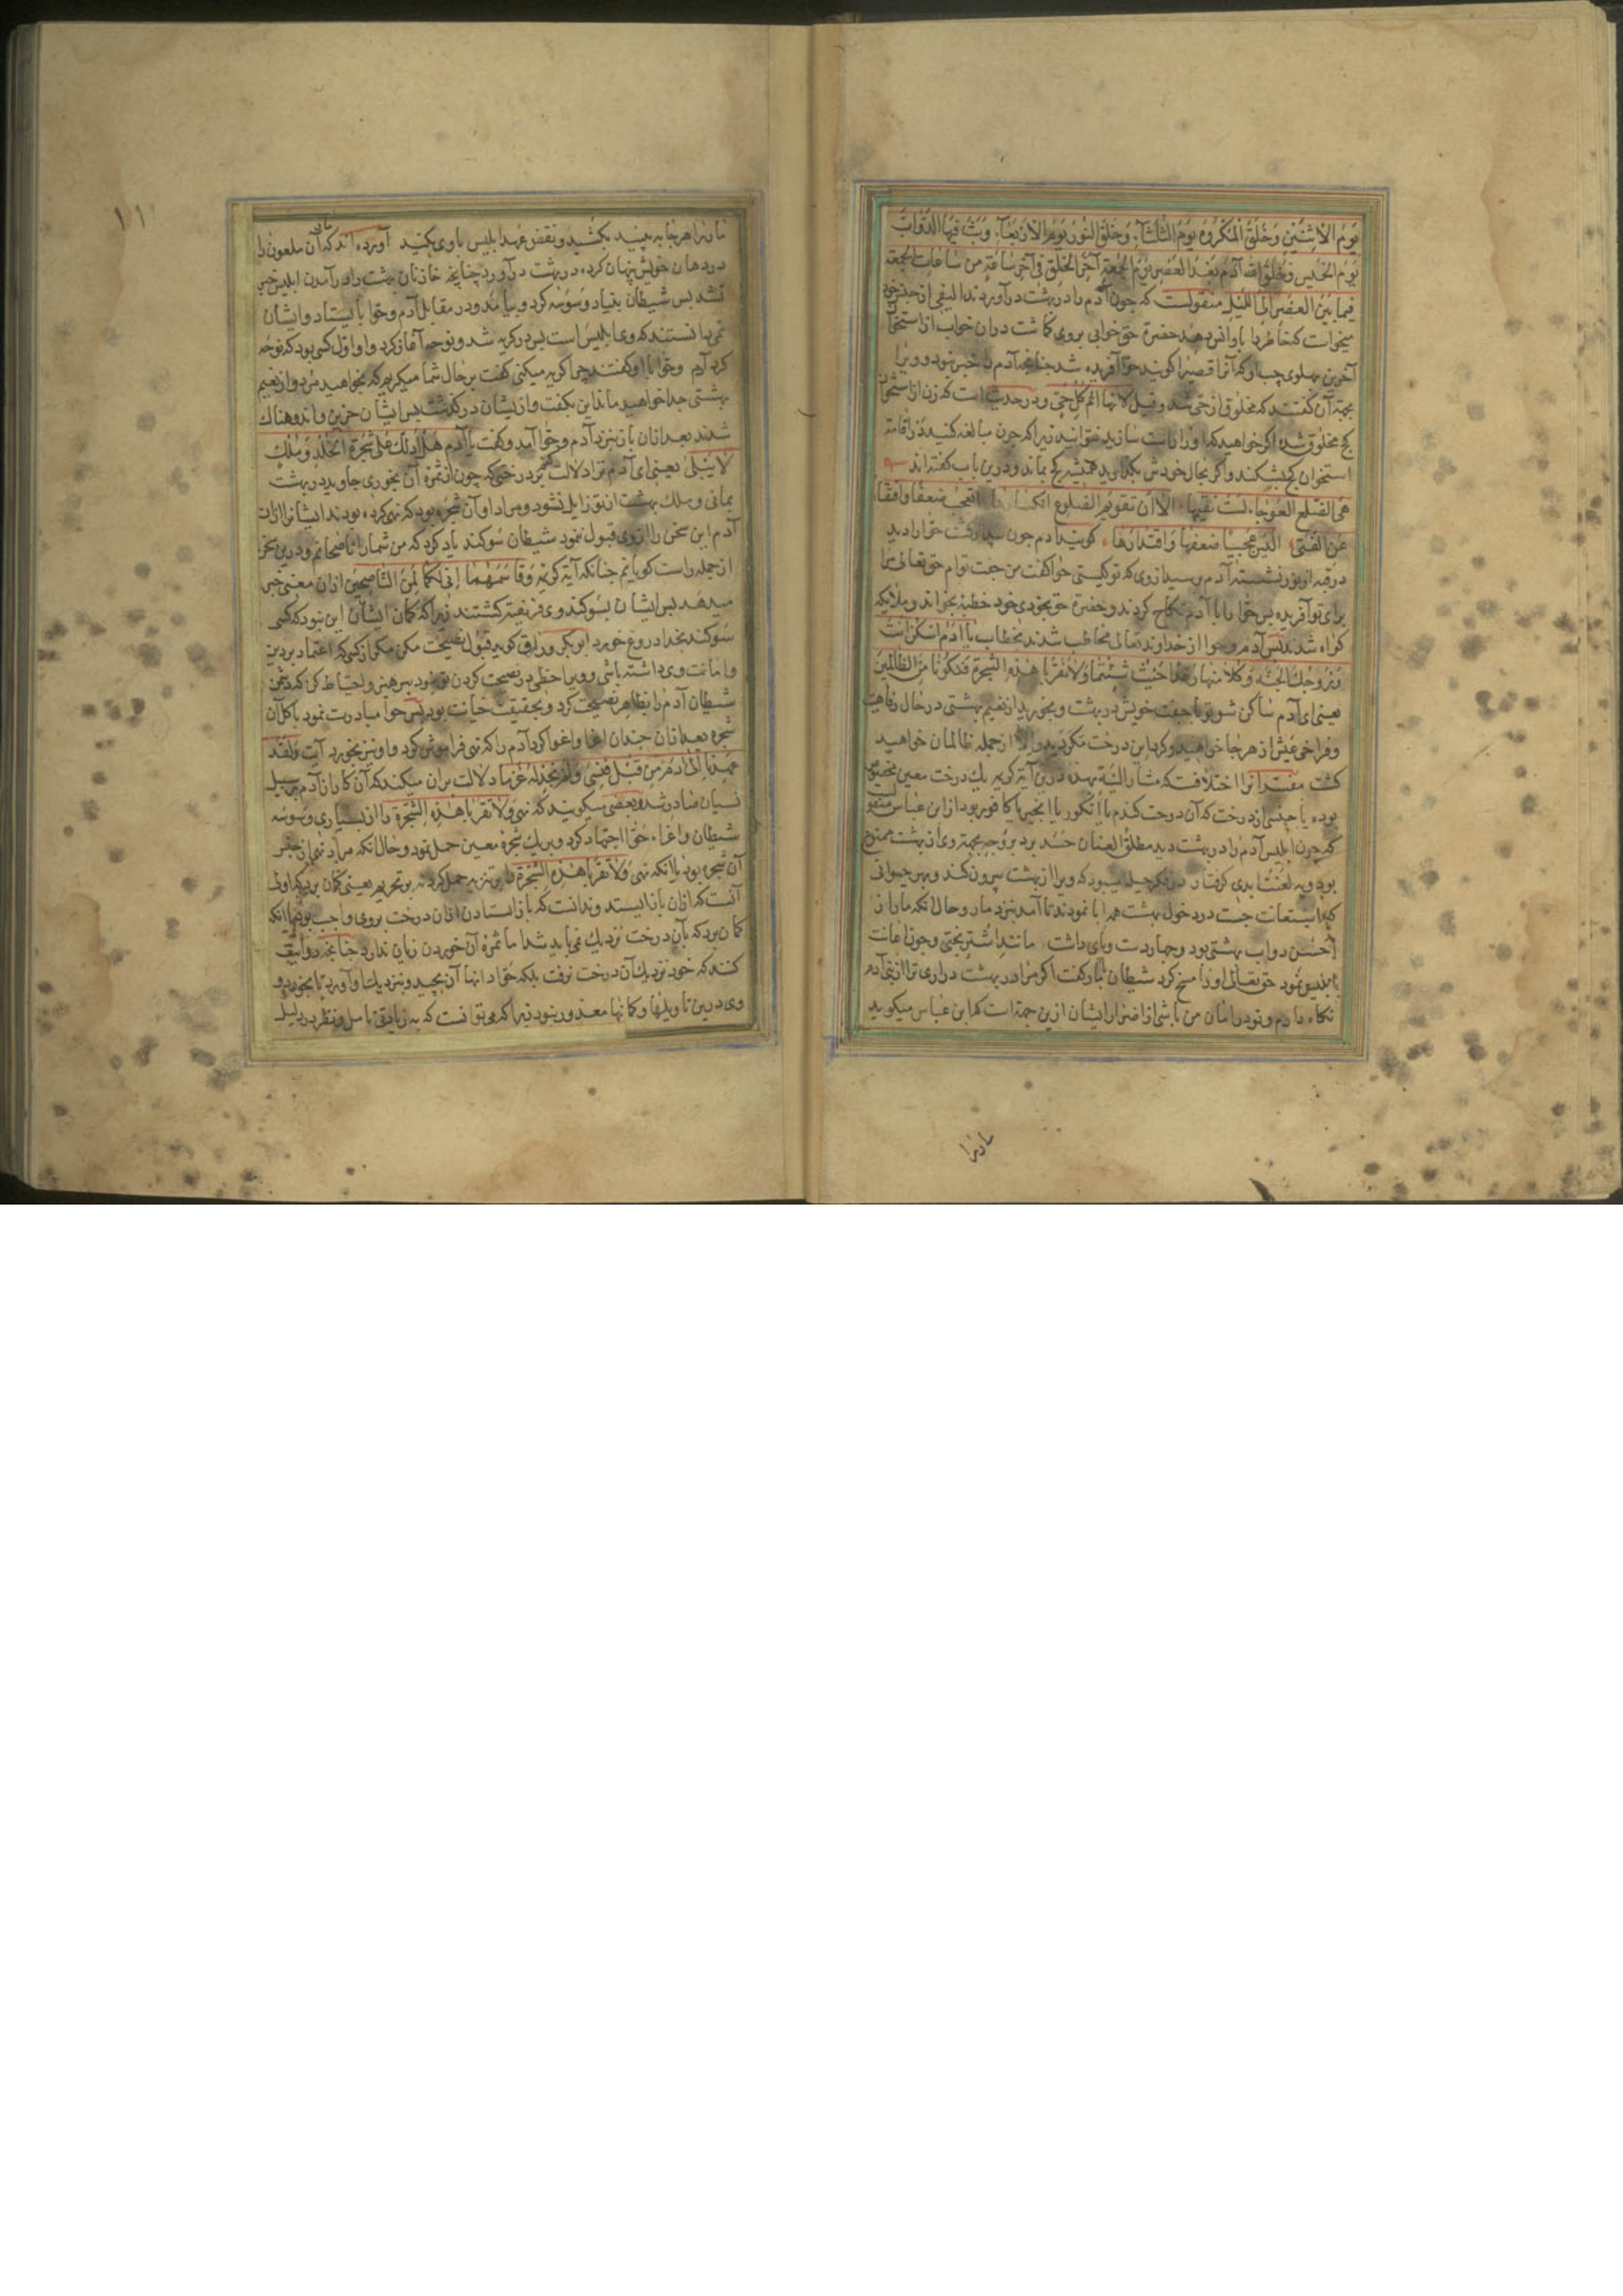 یَوْمَ الاِثْنَیْنِ وَخَلَقَ الْمَکْرُوهَ یَوْمَ الثُّلَثَآءِ وَخَلَقَ النُّورَ یَوْمَ الاَرْبَعَآءِ وَبَثَّ فِیهَا الدَّوَابَّ
یَوْمَ الخَمیسِ وَخَلَقَ الله آدَمَ بَعْدَ العَصْرِ یَوْمَ الجُمعَةِ آخِرَ الخَلْقِ فی آخِرِ سَاعَةٍ مِن سَاعَاتِ الجُمعَه
فیمَا بَیْنَ العَصْرِ اِلَی اللَّیْلِ منقولست که چون آدم را در بهشت درآوردند الیفی از جنس خود
میخواست که خاطر با او انس دهد حضرة حق خوابی بروی کماشت در ان خواب از استخوان
آخرین پهلوی چپ او که آنرا قصیرا کویند حوّا آفریده شد چنانچه آدم را خبر نبود و ویرا
بجهة آن کفتند که مخلوق از حی شد و قیل لانها اُمّ کُلِّ حَیٍّ و در حدیث است که زن از استخوان
کج مخلوق شده اکر خواهید که او را راست سازید نتوانید زیرا که چون مبالغه کنید در اقامة
استخوان کج بشکند و اکر بحال خودش بکذارید همیشه کج بماند و درین باب کفته اند
هی الضلع العَوْجَاءِ لَسْتَ تقیمها الا اِنّ تَقْوِیمَ الضلوع انکسارها اتجمع ضعفًا واقتدارًا
عَلَی الفَتَی الَیْسَ عجیبًا ضعفها واقتدارها کویند آدم چون بیدار کشت حوّا را دید
در قبه از نور نشسته آدم پرسید از وی که تو کیستی حوّا کفت من جفت توام حق تعالی مرا
برای تو آفریده پس حوّا را با آدم نکاح کردند و حضرة حق بخودی خود خطبه بخواند و ملائکه
کواه شدند پس آدم و حوا از خداوند تعالی مخاطب شدند بخطاب یَا آدَمُ اسْکُنْ اَنْتَ
وَزَوْجُكَ الْجَنَّةَ وَکُلَا مِنْهَا رَغَدًا حَیْثُ شِئْتُمَا وَلَا تَقْرَبَا هٰذِهِ الشَّجَرَةَ فَتَکُونَا مِنَ الظَّالِمِینَ
یعنی ای آدم ساکن شو تو با جفت خویش در بهشت و بخورید از نعیم بهشتی در حال رفاهیت
و فراخی عیش از هر جا خواهید و کرد این درخت مکردید والّا از جمله ظالمان خواهید
کشت مفسّرانرا اختلافست که مشار الیه بهذه درین آیة کریمه یك درخت معین مخصوص
بوده یا جنسی از درخت که آن درخت کندم یا انکور یا انجیر یا کافور بود از ابن عباس منقولست
که چون ابلیس آدم را در بهشت دید مطلق العنان حسد برد بر وجه بجهة وی از بهشت ممنوع
بود و به لعنت ابدی کرفتار در فکر حیله میبود که ویرا از بهشت بیرون کند و بهر حیوانی
که استعانت جست در دخول بهشت همه ابا نمودند تا آمد بنزد مار و حال آنکه مار از
اَحْسَن دواب بهشتی بود و چهار دست و پای داشت مانند اشتر بختی و چون اعانت
ابلیس نمود حق تعالی او را مسخ کرد شیطان با مار کفت اکر مرا در بهشت دراری ترا از بنی آدم
نکاه دارم و تو در امان من باشی از اضرار ایشان ازین جهة است که ابن عباس میکوید
مارنرا
۱۱
مارنرا هر جا به بینید بکشید و نقض عهد ابلیس با وی بکنید آورده اند که مار آن ملعون را
در دهان خویش پنهان کرده در بهشت درآورد چنانچه خازنان بهشت را در آمدن ابلیس خبر
نشد پس شیطان بنیاد وسوسه کرد و بیامد و در مقابل آدم و حوّا باایستاد و ایشان
نمی دانستند که وی ابلیس است پس در کریه شد و نوحه آغاز کرد و او اوّل کسی بود که نوحه
کرد آدم و حوّا با او کفتند چرا کریه میکنی کفت بر حال شما میکریم که بخواهید مرد و از نعیم
بهشتی جدا خواهید ماند این بکفت و از یشان در کذشت پس ایشان حزین و اندوهناك
شدند بعد ازان باز بنزد آدم و حوّا آمد و کفت یَا آدَمُ هَلْ اَدُلُّكَ عَلَی شَجَرَةِ الْخُلْدِ وَمُلْكٍ
لَا یَبْلَی یعنی ای آدم ترا دلالت کنم بر درختی که چون از ثمره آن بخوری جاوید در بهشت
بمانی و ملك بهشت از تو زایل نشود و مراد او آن شجره بود که نهی کرده بودند ایشانرا ازان
آدم این سخن را از وی قبول ننمود شیطان سوکند یاد کرد که من شما را ناصحانم و درین سخن
از جمله راست کویانم چنانکه آیة کریمه وَقَاسَمَهُمَا اِنِّی لَکُمَا لَمِنَ النَّاصِحِینَ ازان معنی خبر
میدهد پس ایشان بسوکند وی فریفته کشتند زیرا که کمان ایشان این نبود که کسی
سوکند بخدا دروغ خورد ابوبکر وراق کوید قبول نصیحت مکن مکر از کسی که اعتماد بر دین
و امانت وی داشته باشی و ویرا حظی در نصیحت کردن تو نبود پرهیز و احتیاط کن که دشمن
شیطان آدم را بظاهر نصیحت کرد و بحقیقت خیانت بود پس حوا مبادرت نمود باکل آن
شجره بعد ازان چندان اغرا و اغوا کرد آدم را که نهی فراموش کرد و او نیز بخورد آیت وَلَقَدْ
عَهِدْنَا اِلَی آدَمَ مِن قَبْلُ فَنَسِیَ وَلَمْ نَجِدْ لَهُ عَزْمًا دلالت بران میکند که آن کار از آدم بر سبیل
نسیان صادر شد و بعضی میکویند که نهی وَلَا تَقْرَبَا هٰذِهِ الشَّجَرَةَ را از بسیاری وسوسه
شیطان و اغراء حوّا اجتهاد کرد و بر یك شجره معین حمل نمود و حال آنکه مراد نهی از جنس
آن شجره بود یا آنکه نهی وَلَا تَقْرَبَا هٰذِهِ الشَّجَرَةَ را بر تنزیه حمل کرد نه بر تحریم یعنی کمان برد که اولی
آنست که ازان باز ایستد و ندانست که باز ایستادن ازان درخت بروی واجب بود یا آنکه
کمان برد که بآن درخت نزدیك نمی باید شد اما ثمره آن خوردن زیان ندارد چنانچه روایت
کنند که خود نزدیك آن درخت نرفت بلکه حوّا دانها آن بچید و بنزدیك او آورد تا بخورد و
وی درین تاویلها و کمانها معذور نبود زیرا که می توانست که به زیادتی تامل و نظر در دلیل